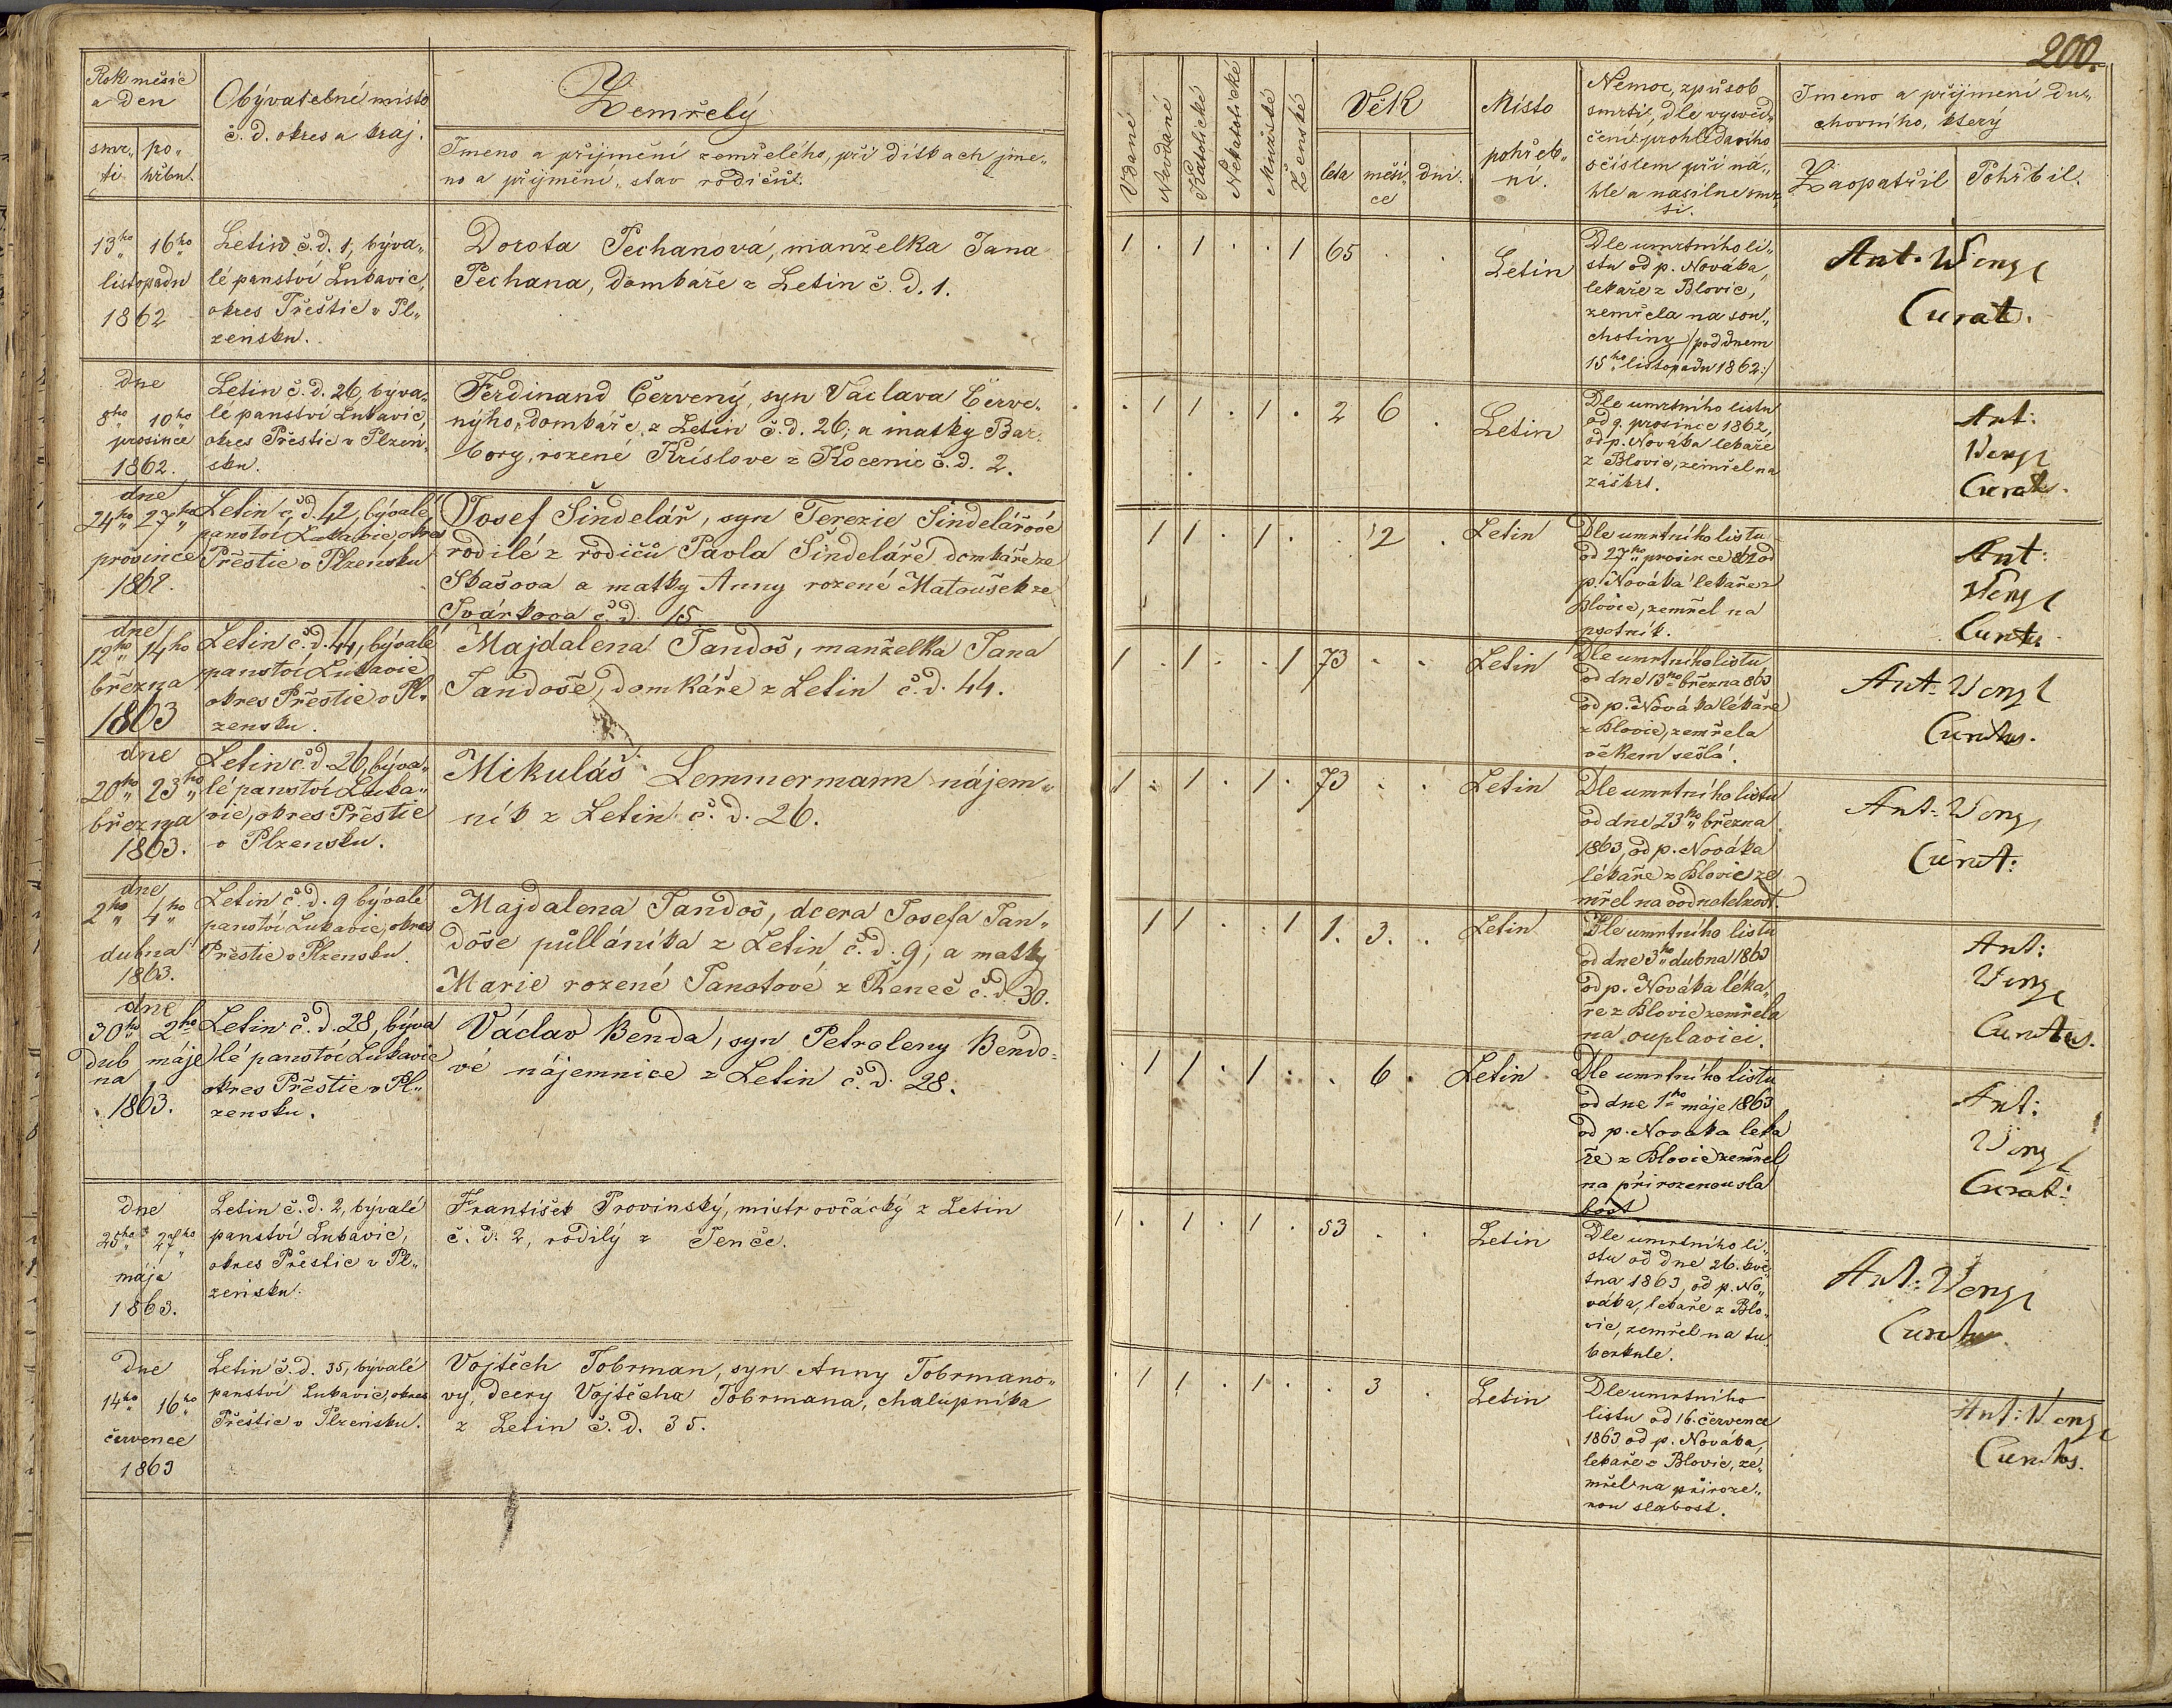 200.
Rok měsíc
a den
smr„
ti
po„
hřbu.
Obývatelné místo
č. d. okres a kraj.
Zemřelý
Jmeno a přijmění zemřelého, při dítkach jme„
no a přijmění, stav rodičů.
13ho 16ho
listopadu
1862
Letin č. d. 1, býva„
lé panství Lukavic,
okres Přeštic v Pl„
zeňsku.
Dorota Pechanová, manželka Jana
Pechana, domkáře z Letin č. d. 1.
dne
8ho 10ho
prosince
1862.
Letin č. d. 26, býva„
lé panství Lukavic,
okres Přeštic v Plzeň„
sku.
Ferdinand Červený, syn Václava Červe„
nýho, domkáře z Letin č. d. 26, a matky Bar„
bory, rozené Kríslove z Kocenic č. d. 2.
dne
24ho 27ho
prosince
1862.
Letin č. d. 42, bývalé
panství Lukavic, okres
Přeštic v Plzensku
Josef Šindelář, syn Terezie Šindelářové
rodilé z rodičů Pavla Šindeláře domkáře ze
Skašova a matky Anny rozené Matoušek ze
Svárkova č. d. 15
dne
12ho 14ho
března
1863
Letin č. d. 44, bývalé
panství Lukavic
okres Přeštic v Pl„
zensku.
Majdalena Jandoš, manželka Jana
Jandoše, domkáře z Letin č. d. 44.
dne
20ho 23ho
března
1863.
Letin č. d. 26, býva„
lé panství Luka„
vic, okres Přeštic
v Plzensku.
Mikuláš Lemmermann nájem„
ník z Letin č. d. 26.
dne
2ho 4ho
dubna
1863.
Letin č. d. 9 bývalé
panství Lukavic, okres
Přeštic v Plzensku.
Majdalena Jandoš, dcera Josefa Jan„
doše půlláníka z Letin č. d. 9, a matky
Marie rozené Janotové z Řeneč č. d. 30.
dne
30ho 2ho
dub máje
na
1863.
Letin č. d. 28, býva
lé panství Lukavic
okres Přeštic v Pl„
zensku.
Václav Benda, syn Petroleny Bendo„
vé nájemnice z Letin č. d. 28.
Dne
25ho 27ho
mája
1863.
Letin č. d. 2, bývalé
panství Lukavic,
okres Přeštic v Pl„
zeňsku.
František Provinský, mistr ovčácký z Letin
č. d. 2, rodilý z Jenče.
Dne
14ho 16ho
července
1863
Letin č. d. 35, bývalé
panství Lukavic, okres
Přeštic v Plzeňsku.
Vojtěch Tobrman, syn Anny Tobrmano„
vy, dcery Vojtěcha Tobrmana, chalupníka
z Letin č. d. 35.
Vdané
Nevdané
Katolické
Nekatolické
Mužské
Ženské
Věk
leta měsí„ dni.
ce
Místo
pohřeb„
ní.
Nemoc, způsob
smrti, dle vysvěd„
čení prohlídacího
s číslem při ná„
hle a nasilne smr„
ti.
Jmeno a přijmení du„
chovního, který
Zaopatřil Pohřbil.
1 . 1 . . 1 65 . . Letin
Dle umrtního li„
stu od p. Nováka,
lekaře z Blovic,
zemřela na sou„
chotiny /: pod dnem
15ho listopadu 1862:/
Ant. Wengl
Curat.
. 1 1 . 1 . 2 6 . Letin
Dle umrtního listu
od 9. prosince 1862,
od p. Nováka lekaře
z Blovic, zemřel na
záškrt.
Ant:
Wengl
Curat.
1 1 . 1 . . 2 . Letin
Dle umrtního listu
od 27ho prosince 862 od
p. Nováka lekaře z
Blovic, zemřel na
psotník.
Ant:
Wengl
Curatus
1 . 1 . . 1 73 . . Letin
Dle umrtního listu
od dne 13ho března 863
od p. Nováka lékáře
z Blovic, zemřela
věkem sešlá.
Ant. Wengl
Curatus.
1 . 1 . 1 . 73 . . Letin
Dle umrtního listu
od dne 23ho března
1863, od p. Nováka
lékaře z Blovic ze
mřel na vodnatelnost.
Ant. Wengl
Curat:
1 1 . . 1 1. 3. . Letin
Dle umrtního listu
od dne 3ho dubna 1863
od p. Nováka léka„
ře z Blovic zemřela
na ouplavici.
Ant:
Wengl
Curatus.
. 1 1 . 1 . . 6 . Letin
Dle umrtního listu
od dne 1ho máje 1863
od p. Nováka leka
ře z Blovic zemřel
na přirozenou sla
bost
Ant:
Wengl
Curat:
1 . 1 . 1 . 53 . . Letin
Dle umrtního li„
stu od dne 26. kvě„
tna 1863, od p. No„
váka, lekaře z Blo„
vic, zemřel na tu„
berkule.
Ant: Wengl
Curatus
. 1 1 . 1 . . 3 . Letin
Dle umrtního
listu od 16. července
1863 od p. Nováka,
lekaře z Blovic, ze„
mřel na přiroze„
nou slabost.
Ant: Wengl
Curatus.